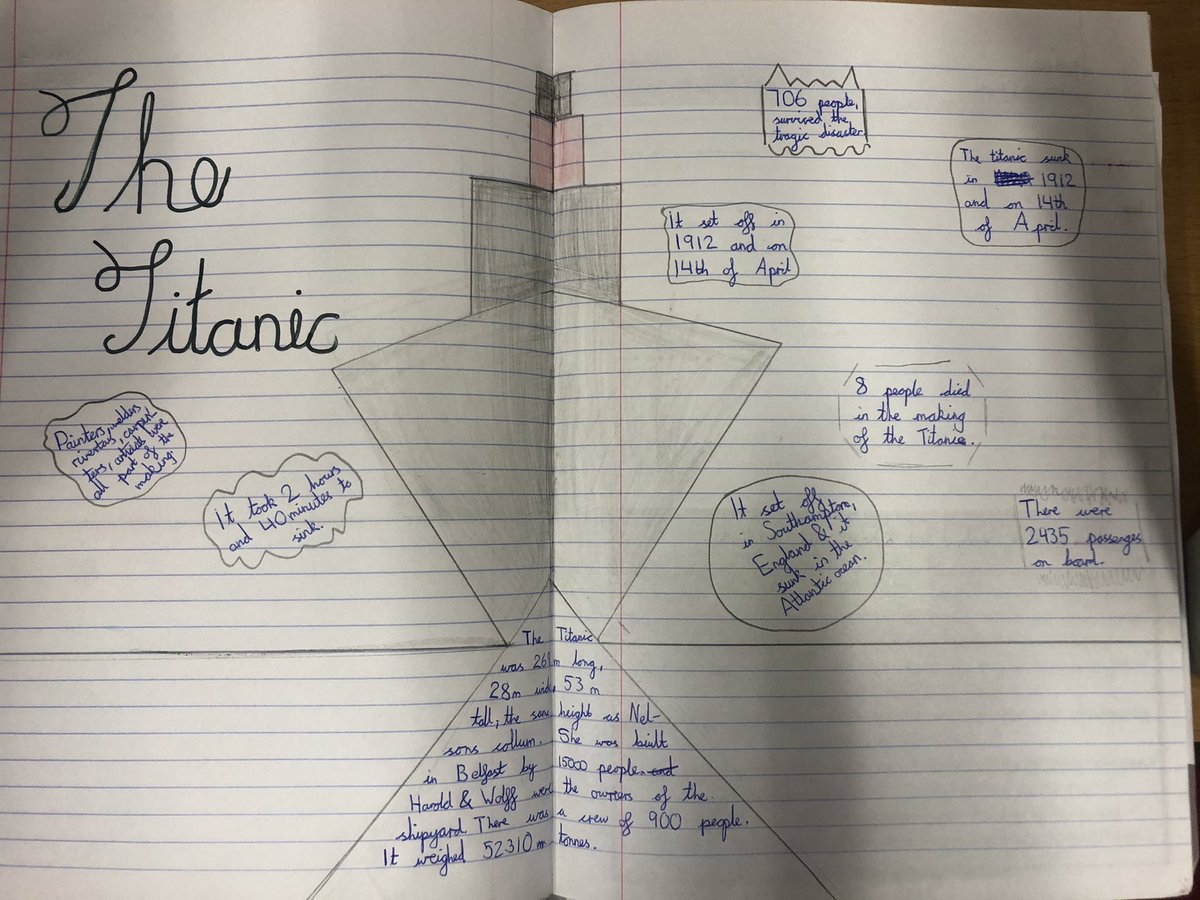 The
Titanic
Painters, welders
rivertors, carpen-
ters, artists were
all part of the
making.
It took 2 hours
and 40 minutes to
sink.
706 people,
survived the
tragic disaster
The titanic sunk
in 1912
and on 14th
of April.
It set off in
1912 and on
14th of April
8 people died
in the making
of the Titanic.
It set off
in Southamptore,
England & it
sunk in the
Atlantic ocean.
There were
2435 passenges
on board.
The Titanic
was m long,
28m wide, 53 m
tall; the same height as Nel-
sons collum. She was built
in Belfast by 15000 people. and
Harold & Wolff were the owners of the
shipyard. There was a crew of 900 people.
It weighed 52310 tonnes.